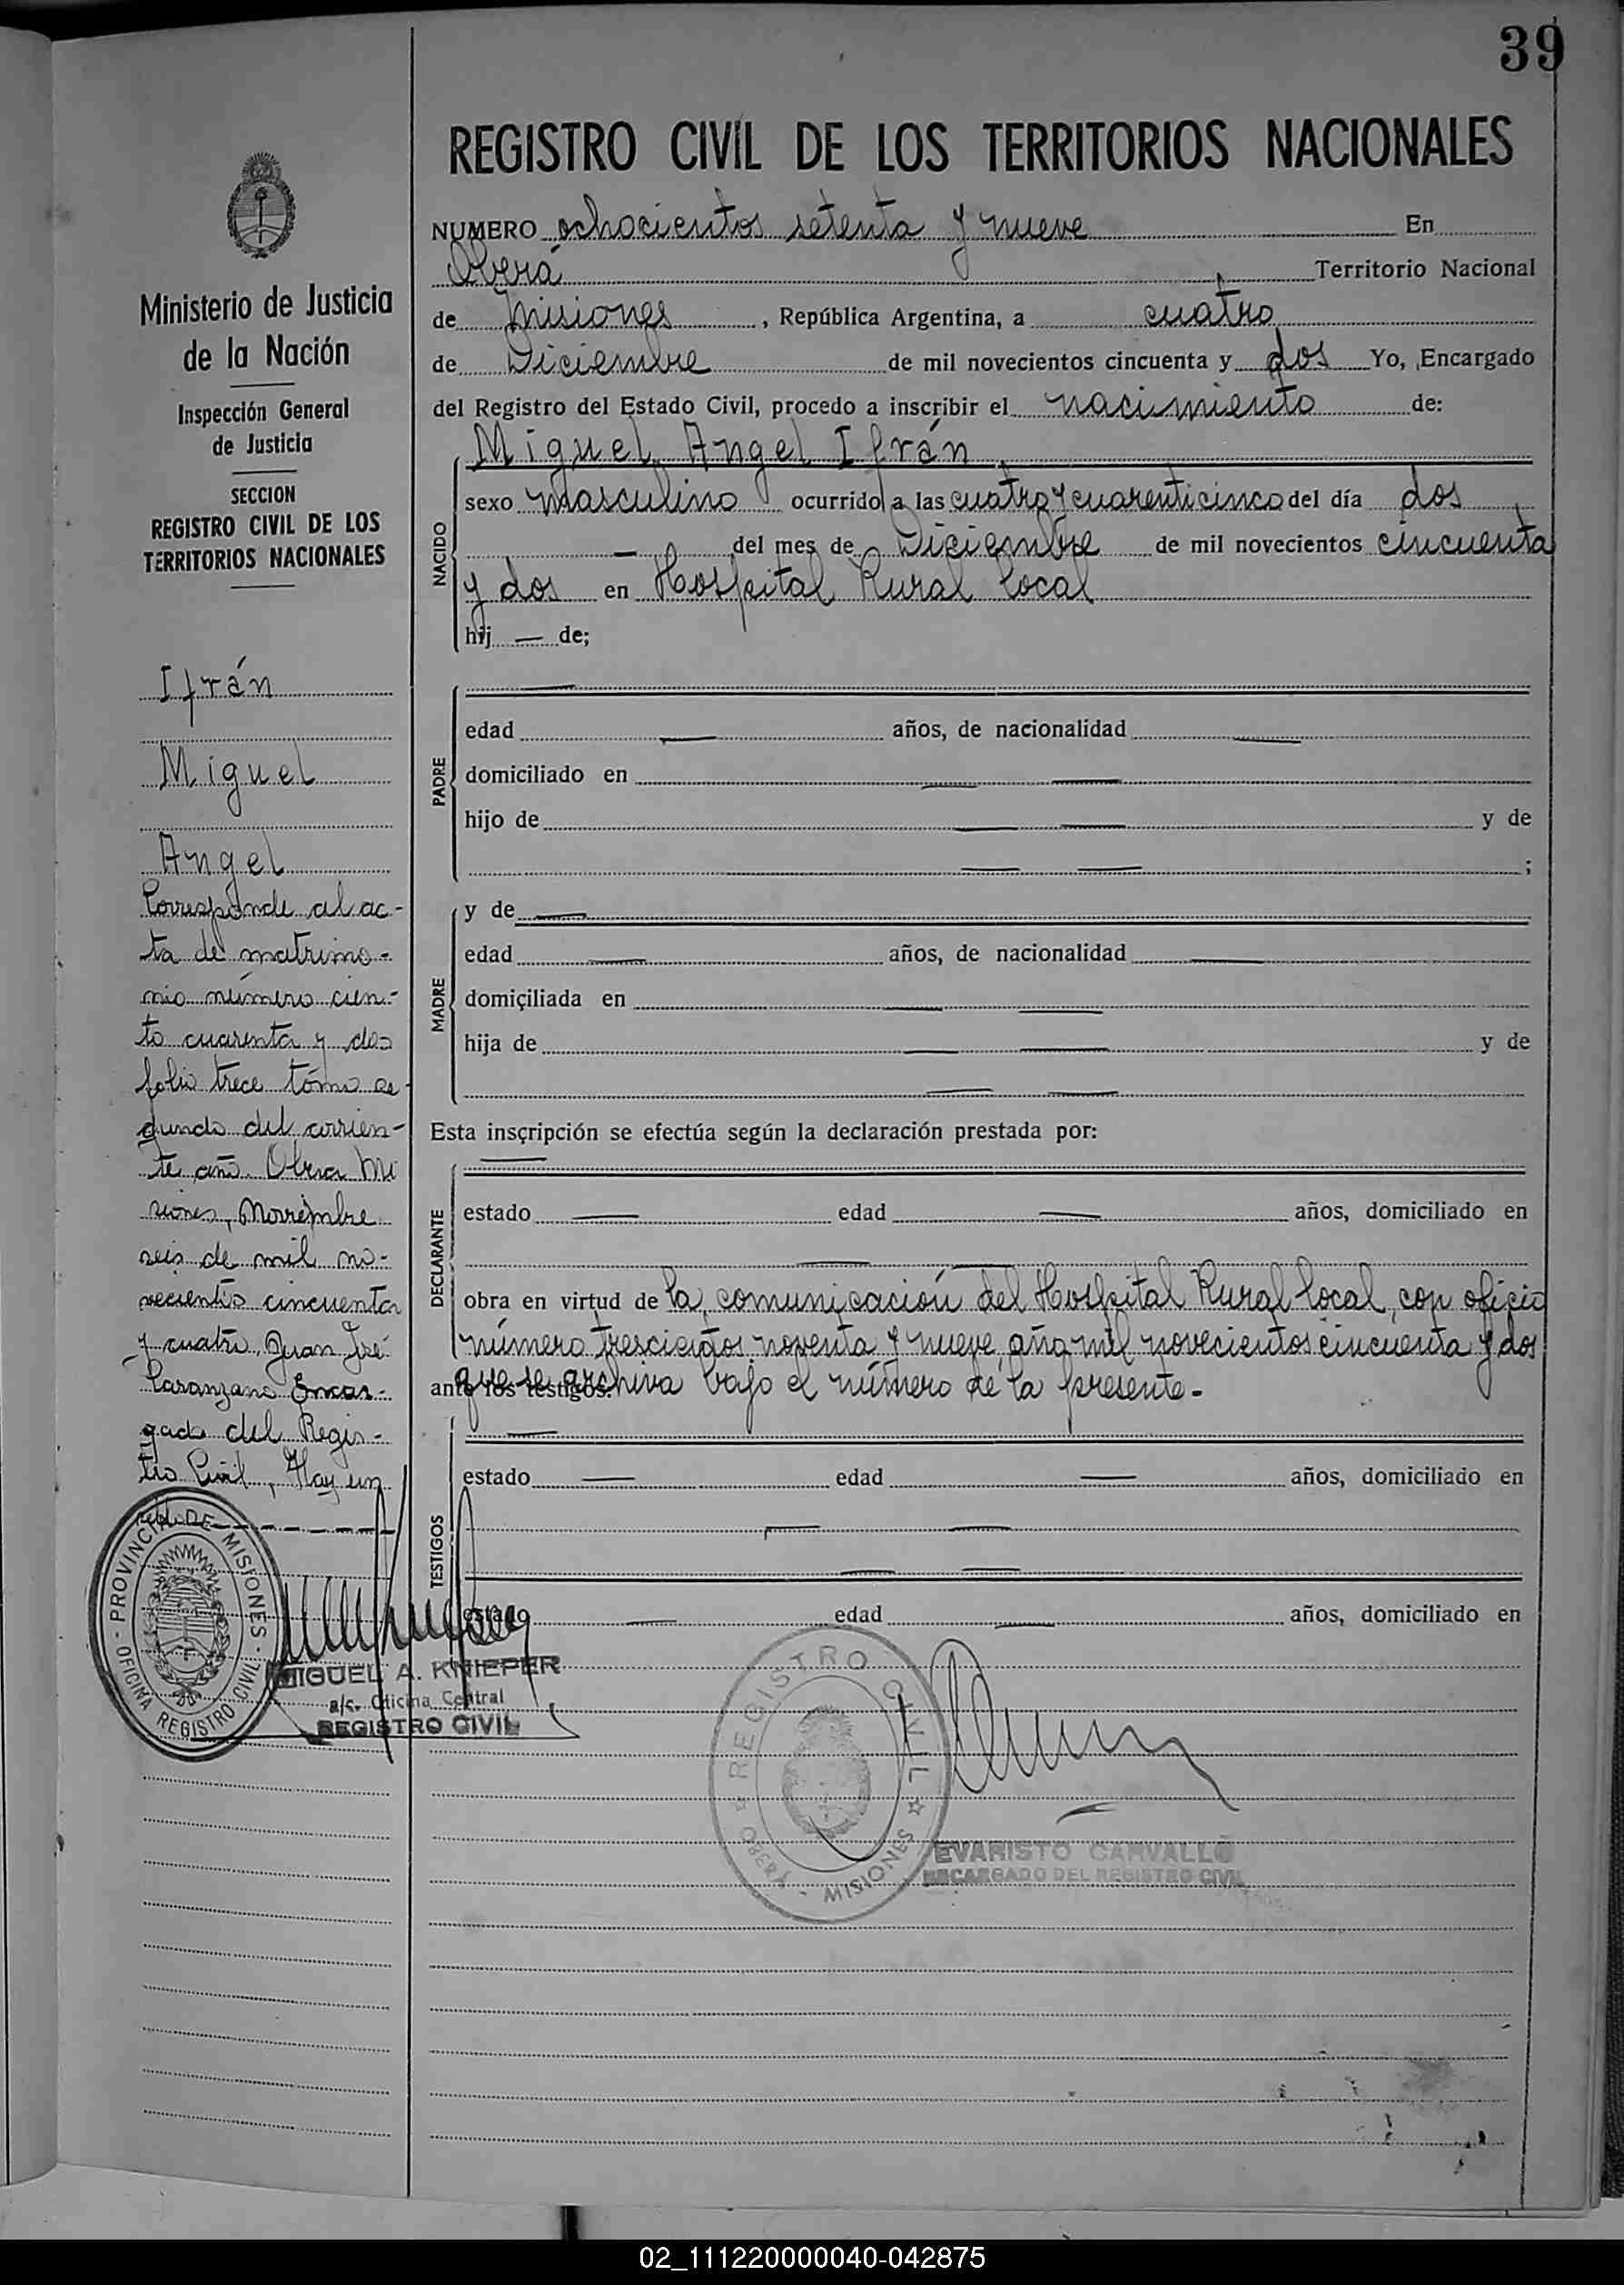 39
REGISTRO CIVIL DE LOS TERRITORIOS NACIONALES
NUMERO ochocientos setenta y nueve En
Oberá Territorio Nacional
de Misiones, República Argentina, a cuatro
de Diciembre de mil novecientos cincuenta y dos Yo, Encargado
del Registro del Estado Civil, procedo a inscribir el nacimiento de:
Miguel Angel Ifrán
NACIDO
sexo masculino ocurrido a las cuatro y cuarenticinco del día dos
— del mes de Diciembre de mil novecientos cincuenta
y dos en Hospital Rural local
hij — de;
PADRE
edad — años, de nacionalidad —
domiciliado en — —
hijo de — — y de
— — ;
MADRE
y de —
edad — años, de nacionalidad —
domiciliada en — —
hija de — — y de
— —
Esta inscripción se efectúa según la declaración prestada por:
DECLARANTE
estado — edad — años, domiciliado en
— —
obra en virtud de la comunicación del Hospital Rural local, con oficio
número trescientos noventa y nueve, año mil novecientos cincuenta y dos
que se archiva bajo el número de la presente.-
ante los testigos:
TESTIGOS
estado — edad — años, domiciliado en
— —
— —
estado — edad — años, domiciliado en
REGISTRO CIVIL
OBERÁ - MISIONES
EVARISTO CARVALLO
ENCARGADO DEL REGISTRO CIVIL
Ministerio de Justicia
de la Nación
Inspección General
de Justicia
SECCION
REGISTRO CIVIL DE LOS
TERRITORIOS NACIONALES
Ifrán
Miguel
Angel
Corresponde al ac-
ta de matrimo-
nio número cien-
to cuarenta y dos
folio trece tomo se-
gundo del corrien-
te año. Obera Mi
siones, Noviembre
seis de mil no-
vecientos cincuenta
y cuatro. Juan José
Encar-
gado del Regis-
tro Civil, Hay un
PROVINCIA DE MISIONES - OFICINA REGISTRO CIVIL
MIGUEL A. KNIEPER
a/c. Oficina Central
REGISTRO CIVIL
02_111220000040-042875